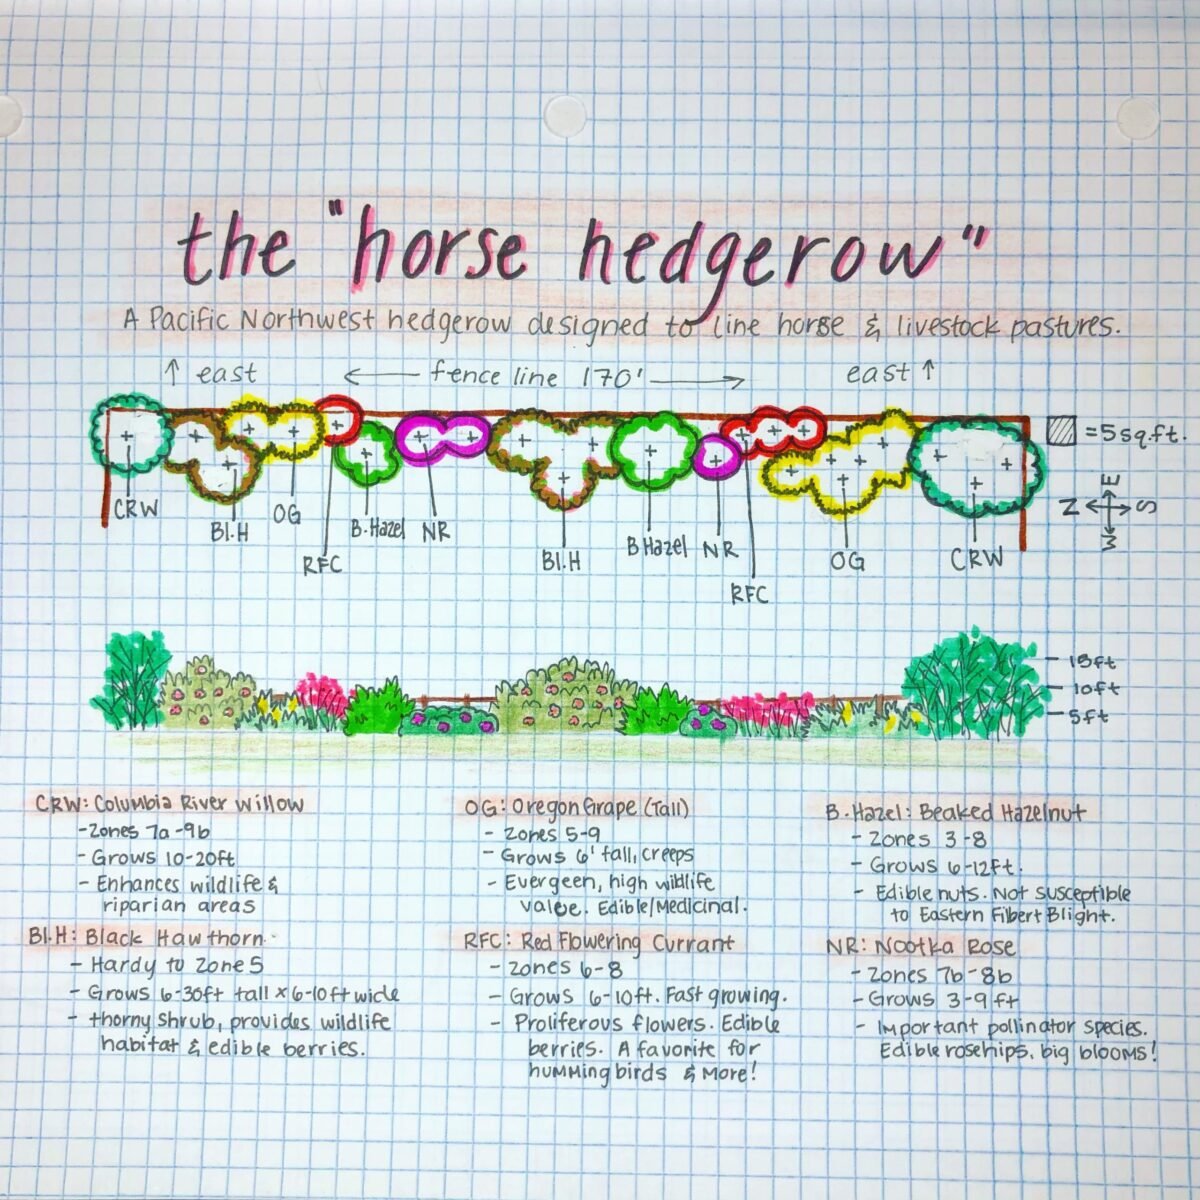 the "horse hedgerow"
A Pacific Northwest hedgerow designed to line horse & livestock pastures.
↑ east
← fence line 170' →
east ↑
= 5 sq.ft.
E
N
S
W
CRW
Bl.H
OG
RFC
B.Hazel
NR
Bl.H
B Hazel
NR
RFC
OG
CRW
15ft
10ft
5ft
CRW: Columbia River Willow
- Zones 7a-9b
- Grows 10-20ft
- Enhances wildlife &
riparian areas
Bl.H: Black Hawthorn.
- Hardy to Zone 5
- Grows 6-30ft tall x 6-10ft wide
- thorny shrub, provides wildlife
habitat & edible berries.
OG: Oregon Grape (Tall)
- Zones 5-9
- Grows 6' tall, creeps
- Evergeen, high wildlife
value. Edible/Medicinal.
RFC: Red Flowering Currant
- Zones 6-8
- Grows 6-10ft. Fast growing.
- Proliferous flowers. Edible
berries. A favorite for
hummingbirds & More!
B.Hazel: Beaked Hazelnut
- Zones 3-8
- Grows 6-12ft.
- Edible nuts. Not susceptible
to Eastern Filbert Blight.
NR: Nootka Rose
- Zones 7b-8b
- Grows 3-9 ft
- Important pollinator species.
Edible rosehips, big blooms!